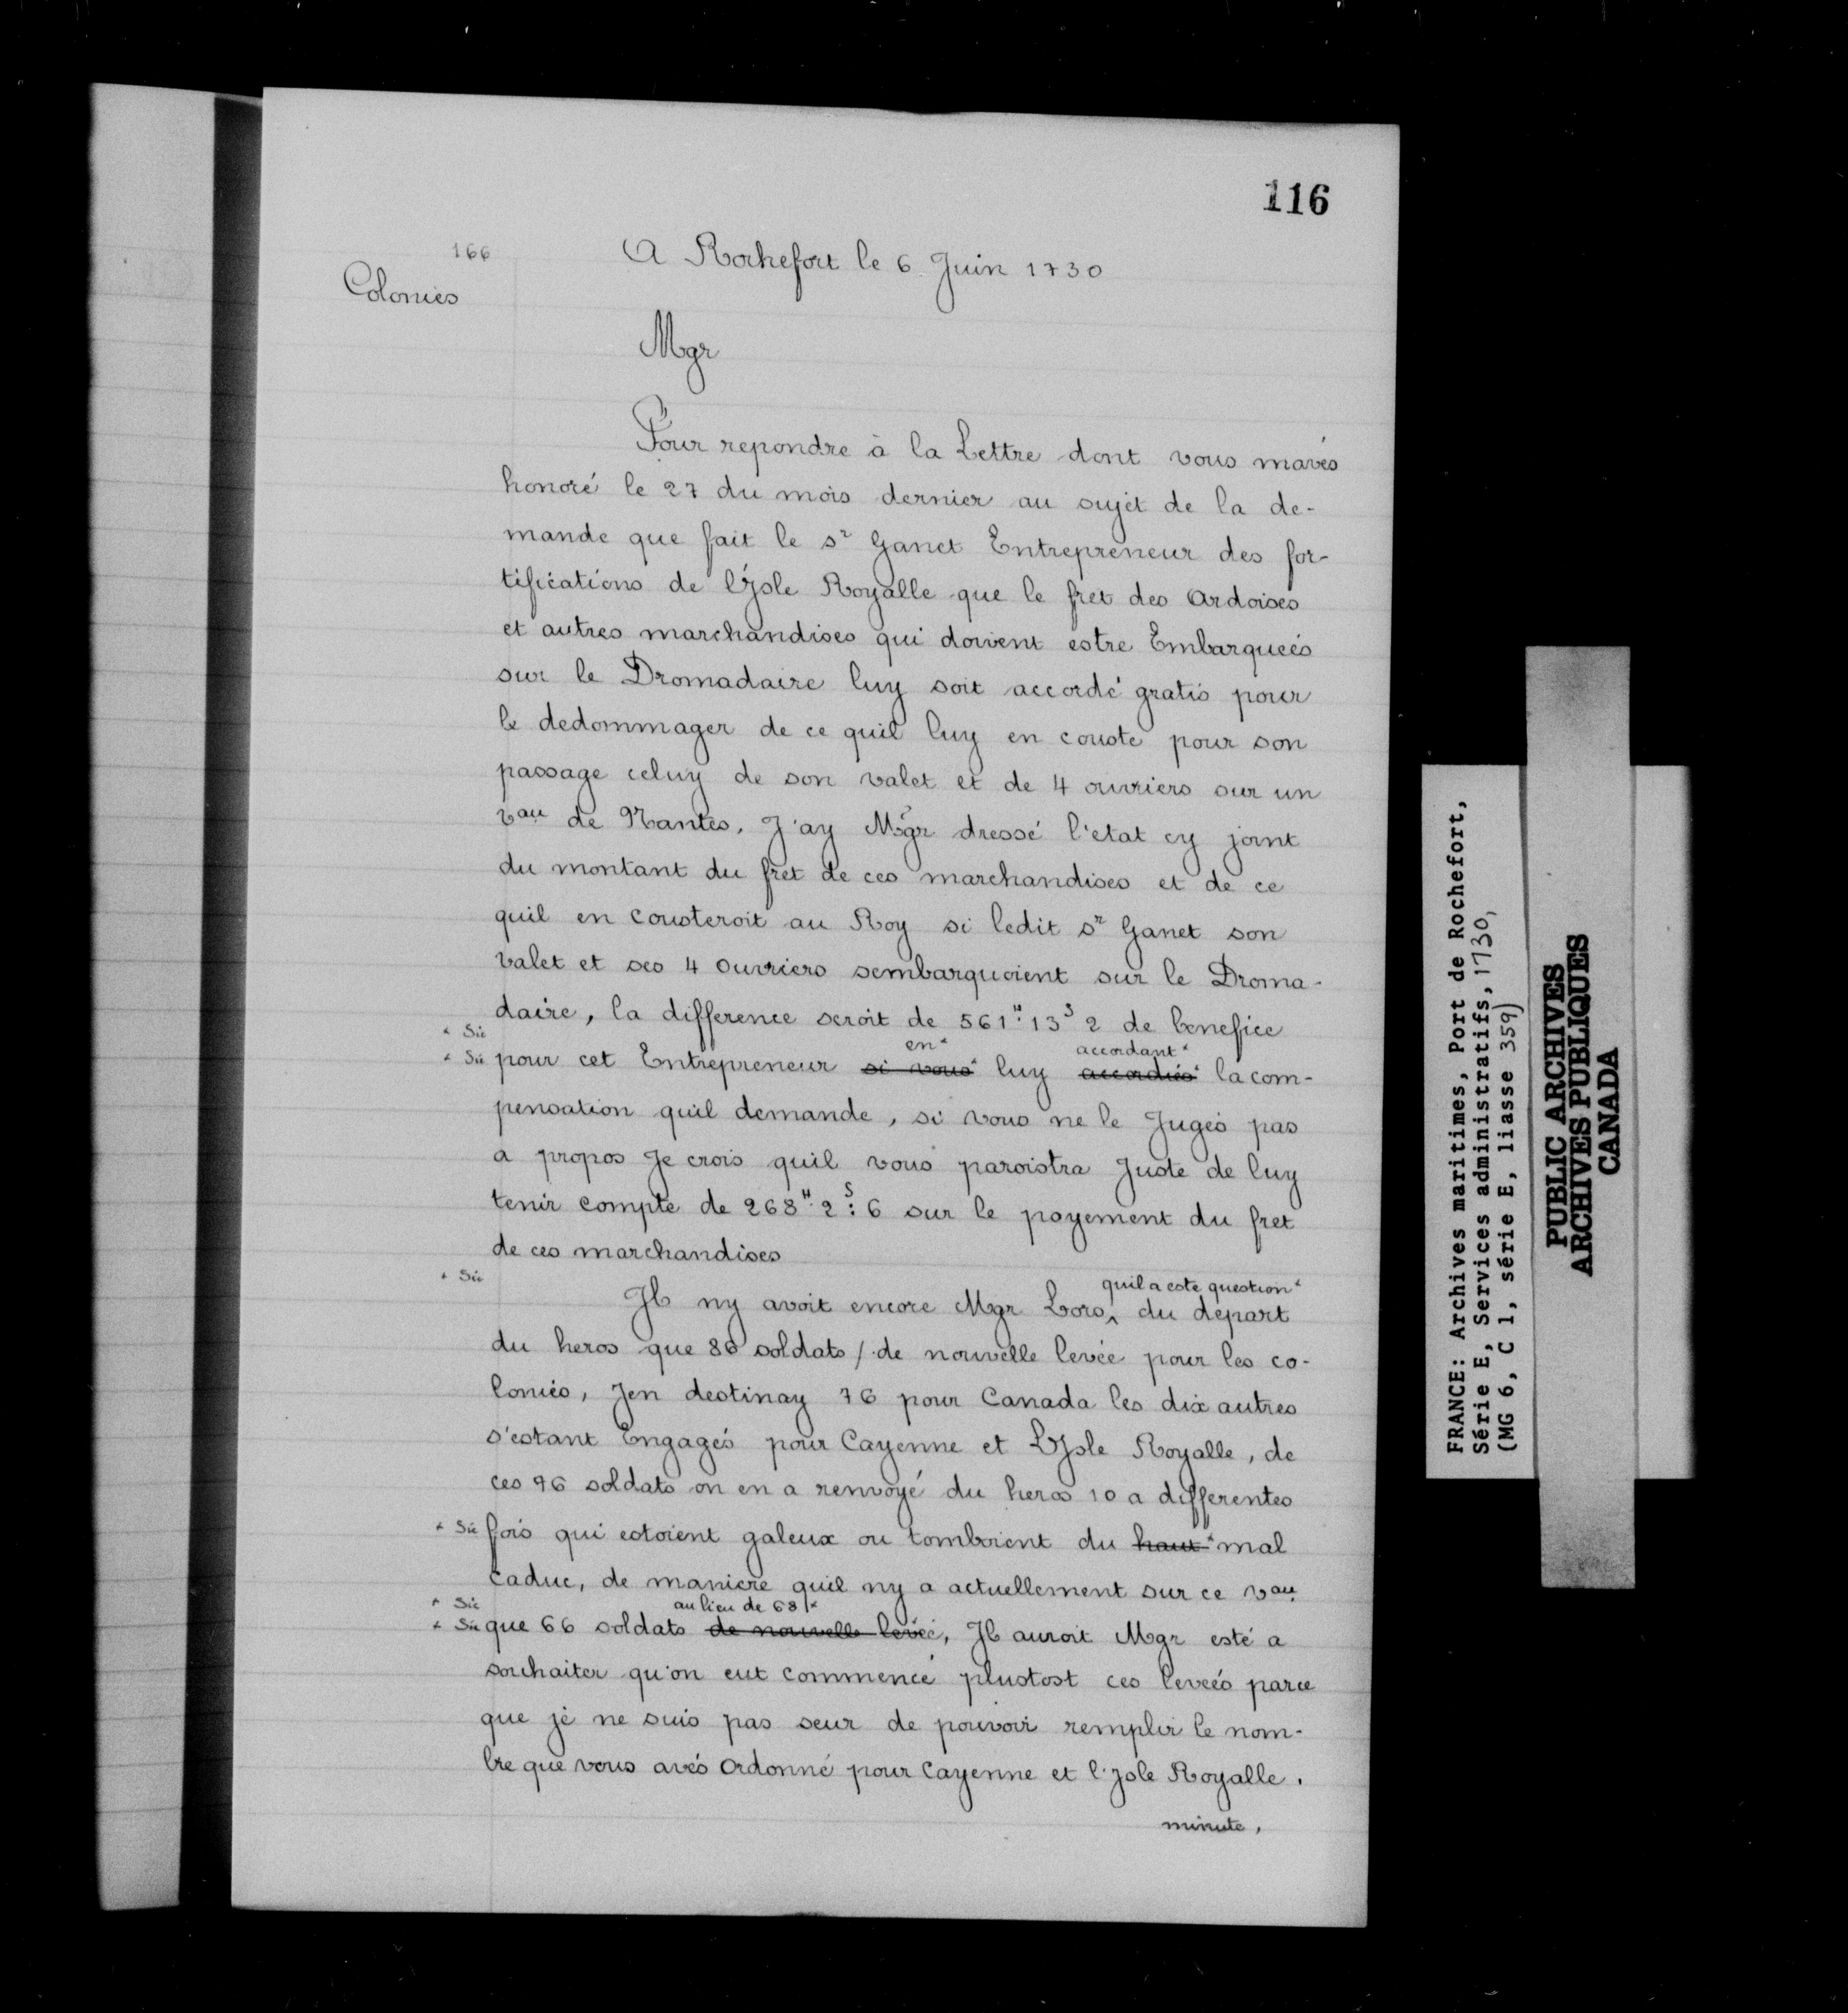 116
166
A Rochefort le 6 Juin 1730
Colonies
Mgr
Pour repondre à la Lettre dont vous mavés
honoré le 27 du mois dernier au sujet de la de-
mande que fait le sr Ganet Entrepreneur des for-
tifications de l'Jsle Royalle que le fret des Ardoises
et autres marchandises qui doivent estre Embarqueés
sur le Dromadaire luy soit accordé gratis pour
le dedommager de ce quil luy en couste pour son
passage celuy de son valet et de 4 ouvriers sur un
vau de Nantes. J'ay Mgr dressé l'etat cy joint
du montant du fret de ces marchandises et de ce
quil en cousteroit au Roy si ledit sr Ganet son
valet et ses 4 ouvriers sembarquoient sur le Droma-
daire, la difference seroit de 561ᴴ 13ˢ 2 de benefice
* Sic en* accordant*
* Sic pour cet Entrepreneur si vous* luy accordiés* la com-
pensation quil demande, si vous ne le Jugés pas
a propos Je crois quil vous paroistra Juste de luy
tenir compte de 268ᴴ 2ˢ: 6 sur le payement du fret
de ces marchandises
* Sic quil a este question*
Jl ny avoit encore Mgr Lors‸ du depart
du heros que 86 soldats /. de nouvelle levée pour les co-
lonies, Jen destinay 76 pour Canada les dix autres
s'estant Engagés pour Cayenne et LJsle Royalle, de
ces 76 soldats on en a renvoyé du heros 10 a differentes
* Sic fois qui estoient galeux ou tomboient du haut* mal
caduc, de maniere quil ny a actuellement sur ce vau
* Sic au lieu de 68 /*
* Sic que 66 soldats de nouvelle levée, Jl auroit Mgr esté a
souhaiter qu'on eut commencé plustost ces leveés parce
que je ne suis pas seur de pouvoir remplir le nom-
bre que vous avés ordonné pour Cayenne et l'Jsle Royalle.
minute,
FRANCE: Archives maritimes, Port de Rochefort,
Série E, Services administratifs, 1730,
(MG 6, C 1, série E, liasse 359)
PUBLIC ARCHIVES
ARCHIVES PUBLIQUES
CANADA